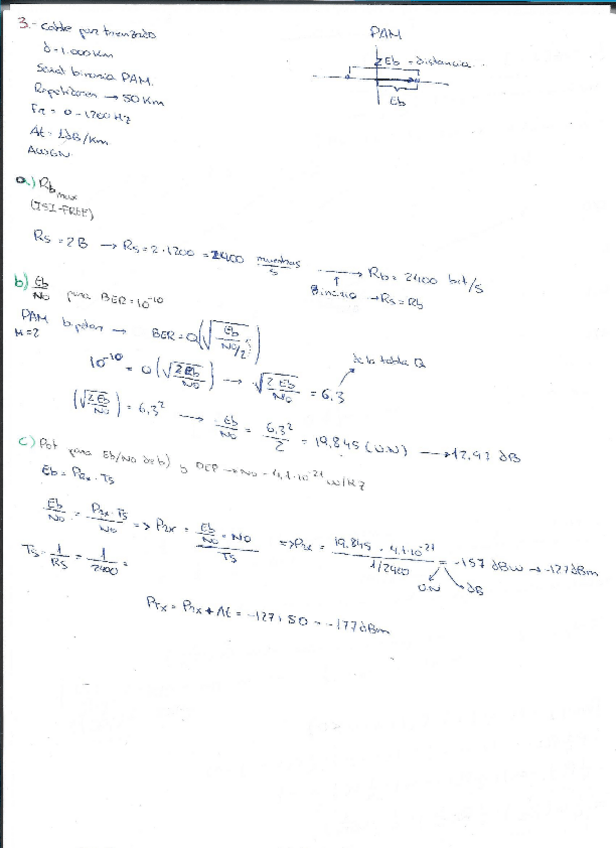 3.- Cable par trenzado
d = 1.000 Km
Señal binaria PAM.
Repetidores → 50 Km
Fr = 0 - 1200 Hz
At = 1dB/Km
AWGN
PAM
2Eb = distancia
Eb
a) Rb max
(ISI-FREE)
Rs = 2B → Rs = 2·1200 = 2400 muestras/s → Rb = 2400 bit/s
Binario → Rs = Rb
b) Eb/No para BER = 10^-10
PAM bipolar → BER = Q(√(Eb/(No/2)))
M=2
10^-10 = Q(√(2Eb/No)) → √(2Eb/No) = 6,3
de la tabla Q
(√(2Eb/No)) = 6,3² → Eb/No = 6,3²/2 = 19,845 (U.N) → 12,97 dB
c) Pot para Eb/No de b) y DEP → No = 4,1·10^-21 W/Hz
Eb = Prx · Ts
Eb/No = Prx·Ts/No => Prx = (Eb/No · No)/Ts => Prx = (19,845 · 4,1·10^-21)/(1/2400) = -157 dBW → -127dBm
U.N dB
Ts = 1/Rs = 1/2400 =
PTx = Prx + At = -127 + 50 = -177dBm